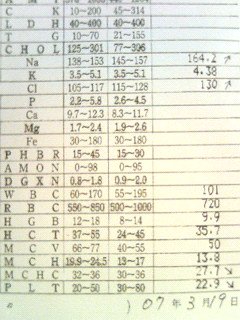 C K 10~200 45~314
L D H 40~400 40~400
T G 10~70 21~155
C H O L 125~301 77~396
Na 138~153 145~157 164.2 ↗
K 3.5~5.1 3.5~5.1 4.38
Cl 105~117 115~128 130 ↗
P 2.2~5.8 2.6~4.5
Ca 9.7~12.3 8.3~11.7
Mg 1.7~2.4 1.9~2.6
Fe 30~180 30~180
P H B R 15~45 15~30
A M O N 0~98 0~95
D G X N 0.8~1.8 0.9~2.0
W B C 60~170 55~195 101
R B C 550~850 500~1000 720
H G B 12~18 8~14 9.9
H C T 37~55 24~45 35.7
M C V 66~77 40~55 50
M C H 19.9~24.5 13~17 13.8
M C H C 32~36 30~36 27.7 ↘
P L T 20~50 30~80 22.9 ↘
) 07 年 3月 19日